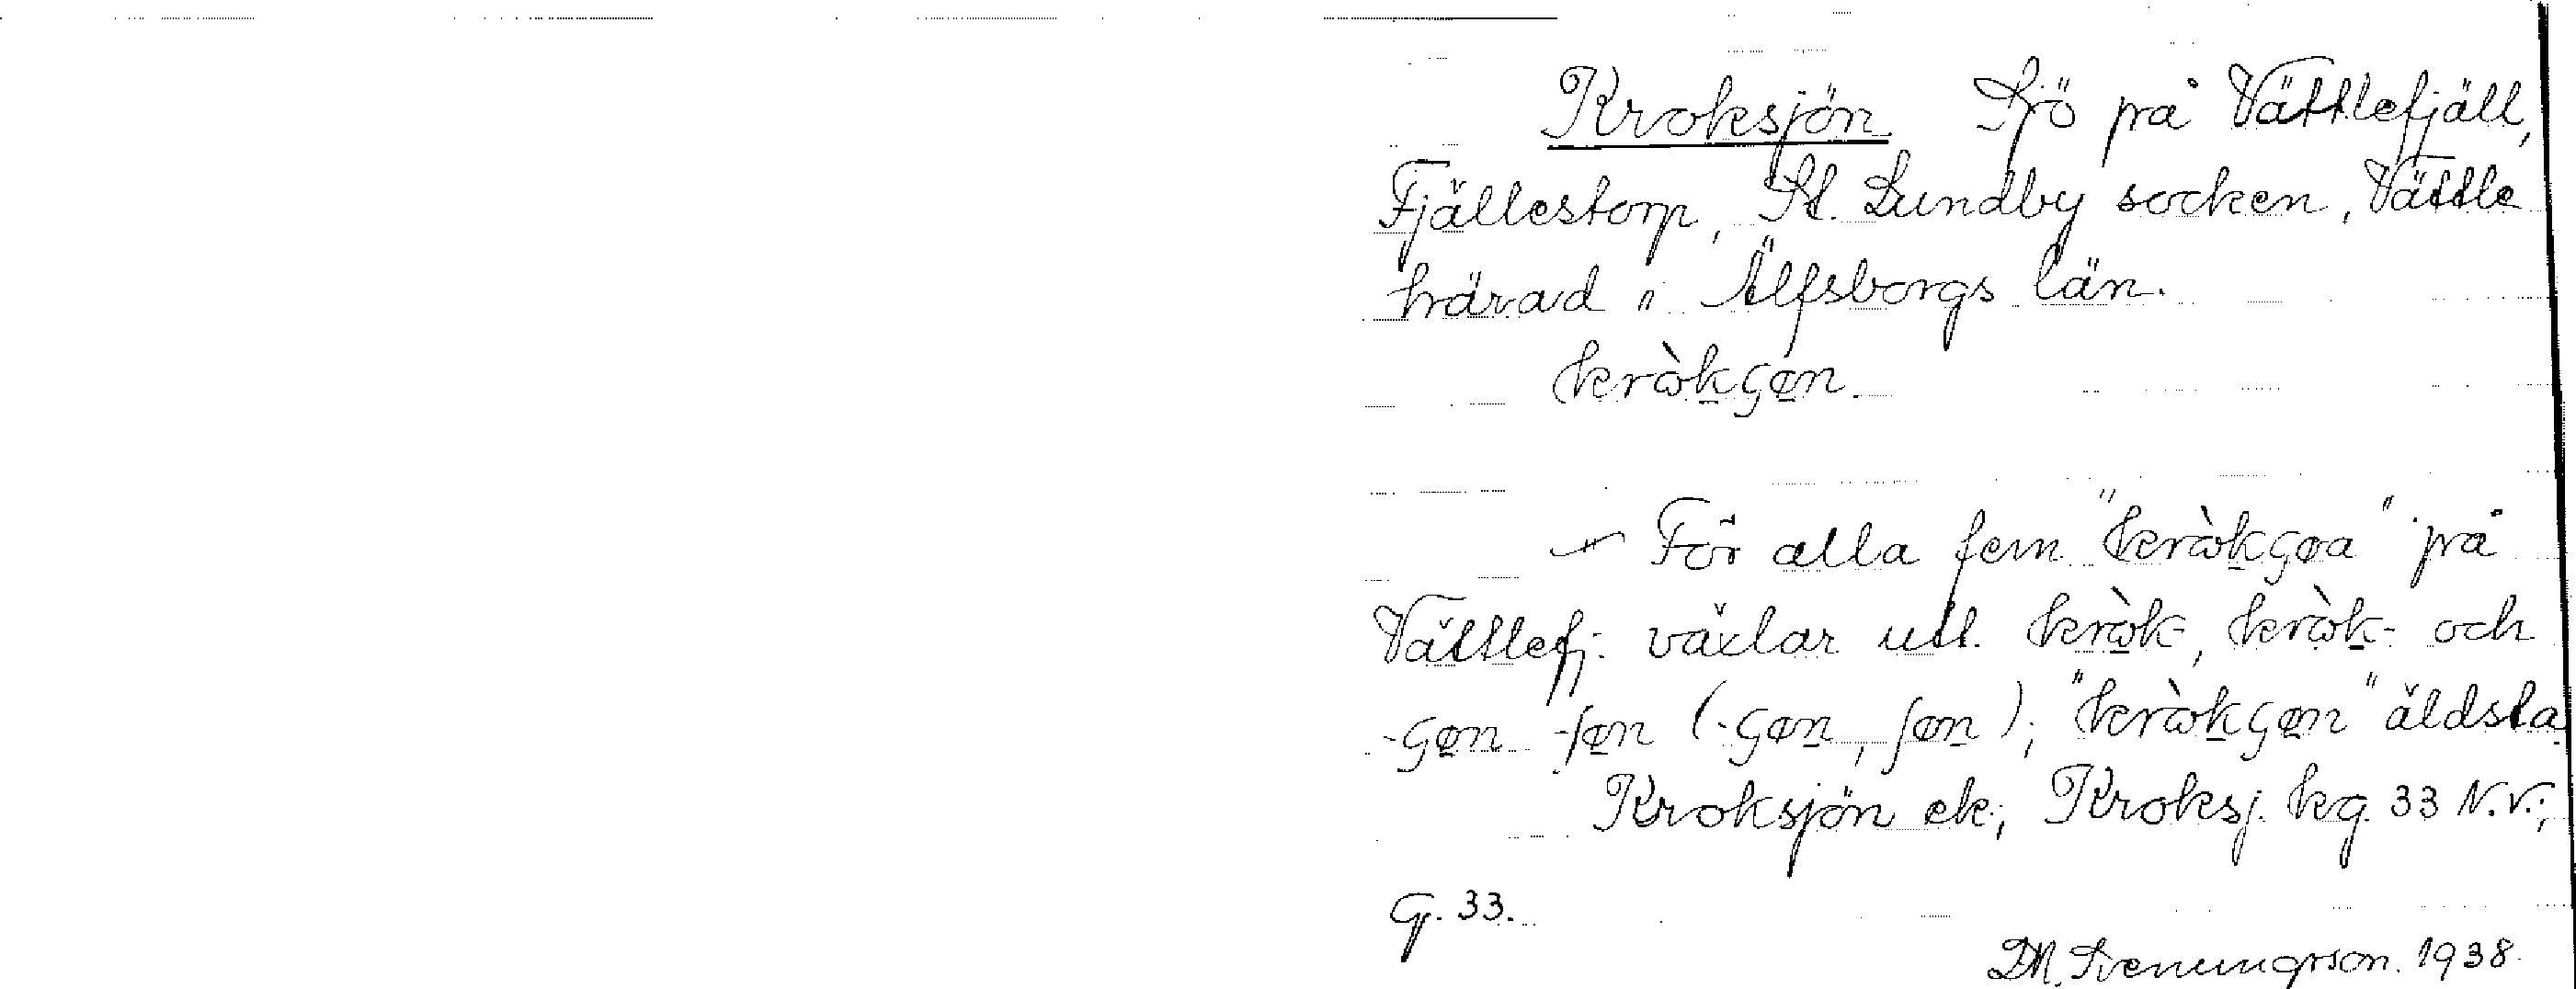 Kroksjön Sjö på Vättlefjäll,
Fjällestorp, St. Lundby socken, Vättle
härad i Älfsborgs län.
krὼkʂøn.
— För alla fem "krὼkʂøa" på
Vättlefj. växlar utt. krὼk-, krὼk- och
-ʂøn -ʃøn (-ʂøn, ʃøn); "krὼkʂøn" äldsta
Kroksjön ek; Kroksj. kg 33 N.V.;
G. 33.
1938.